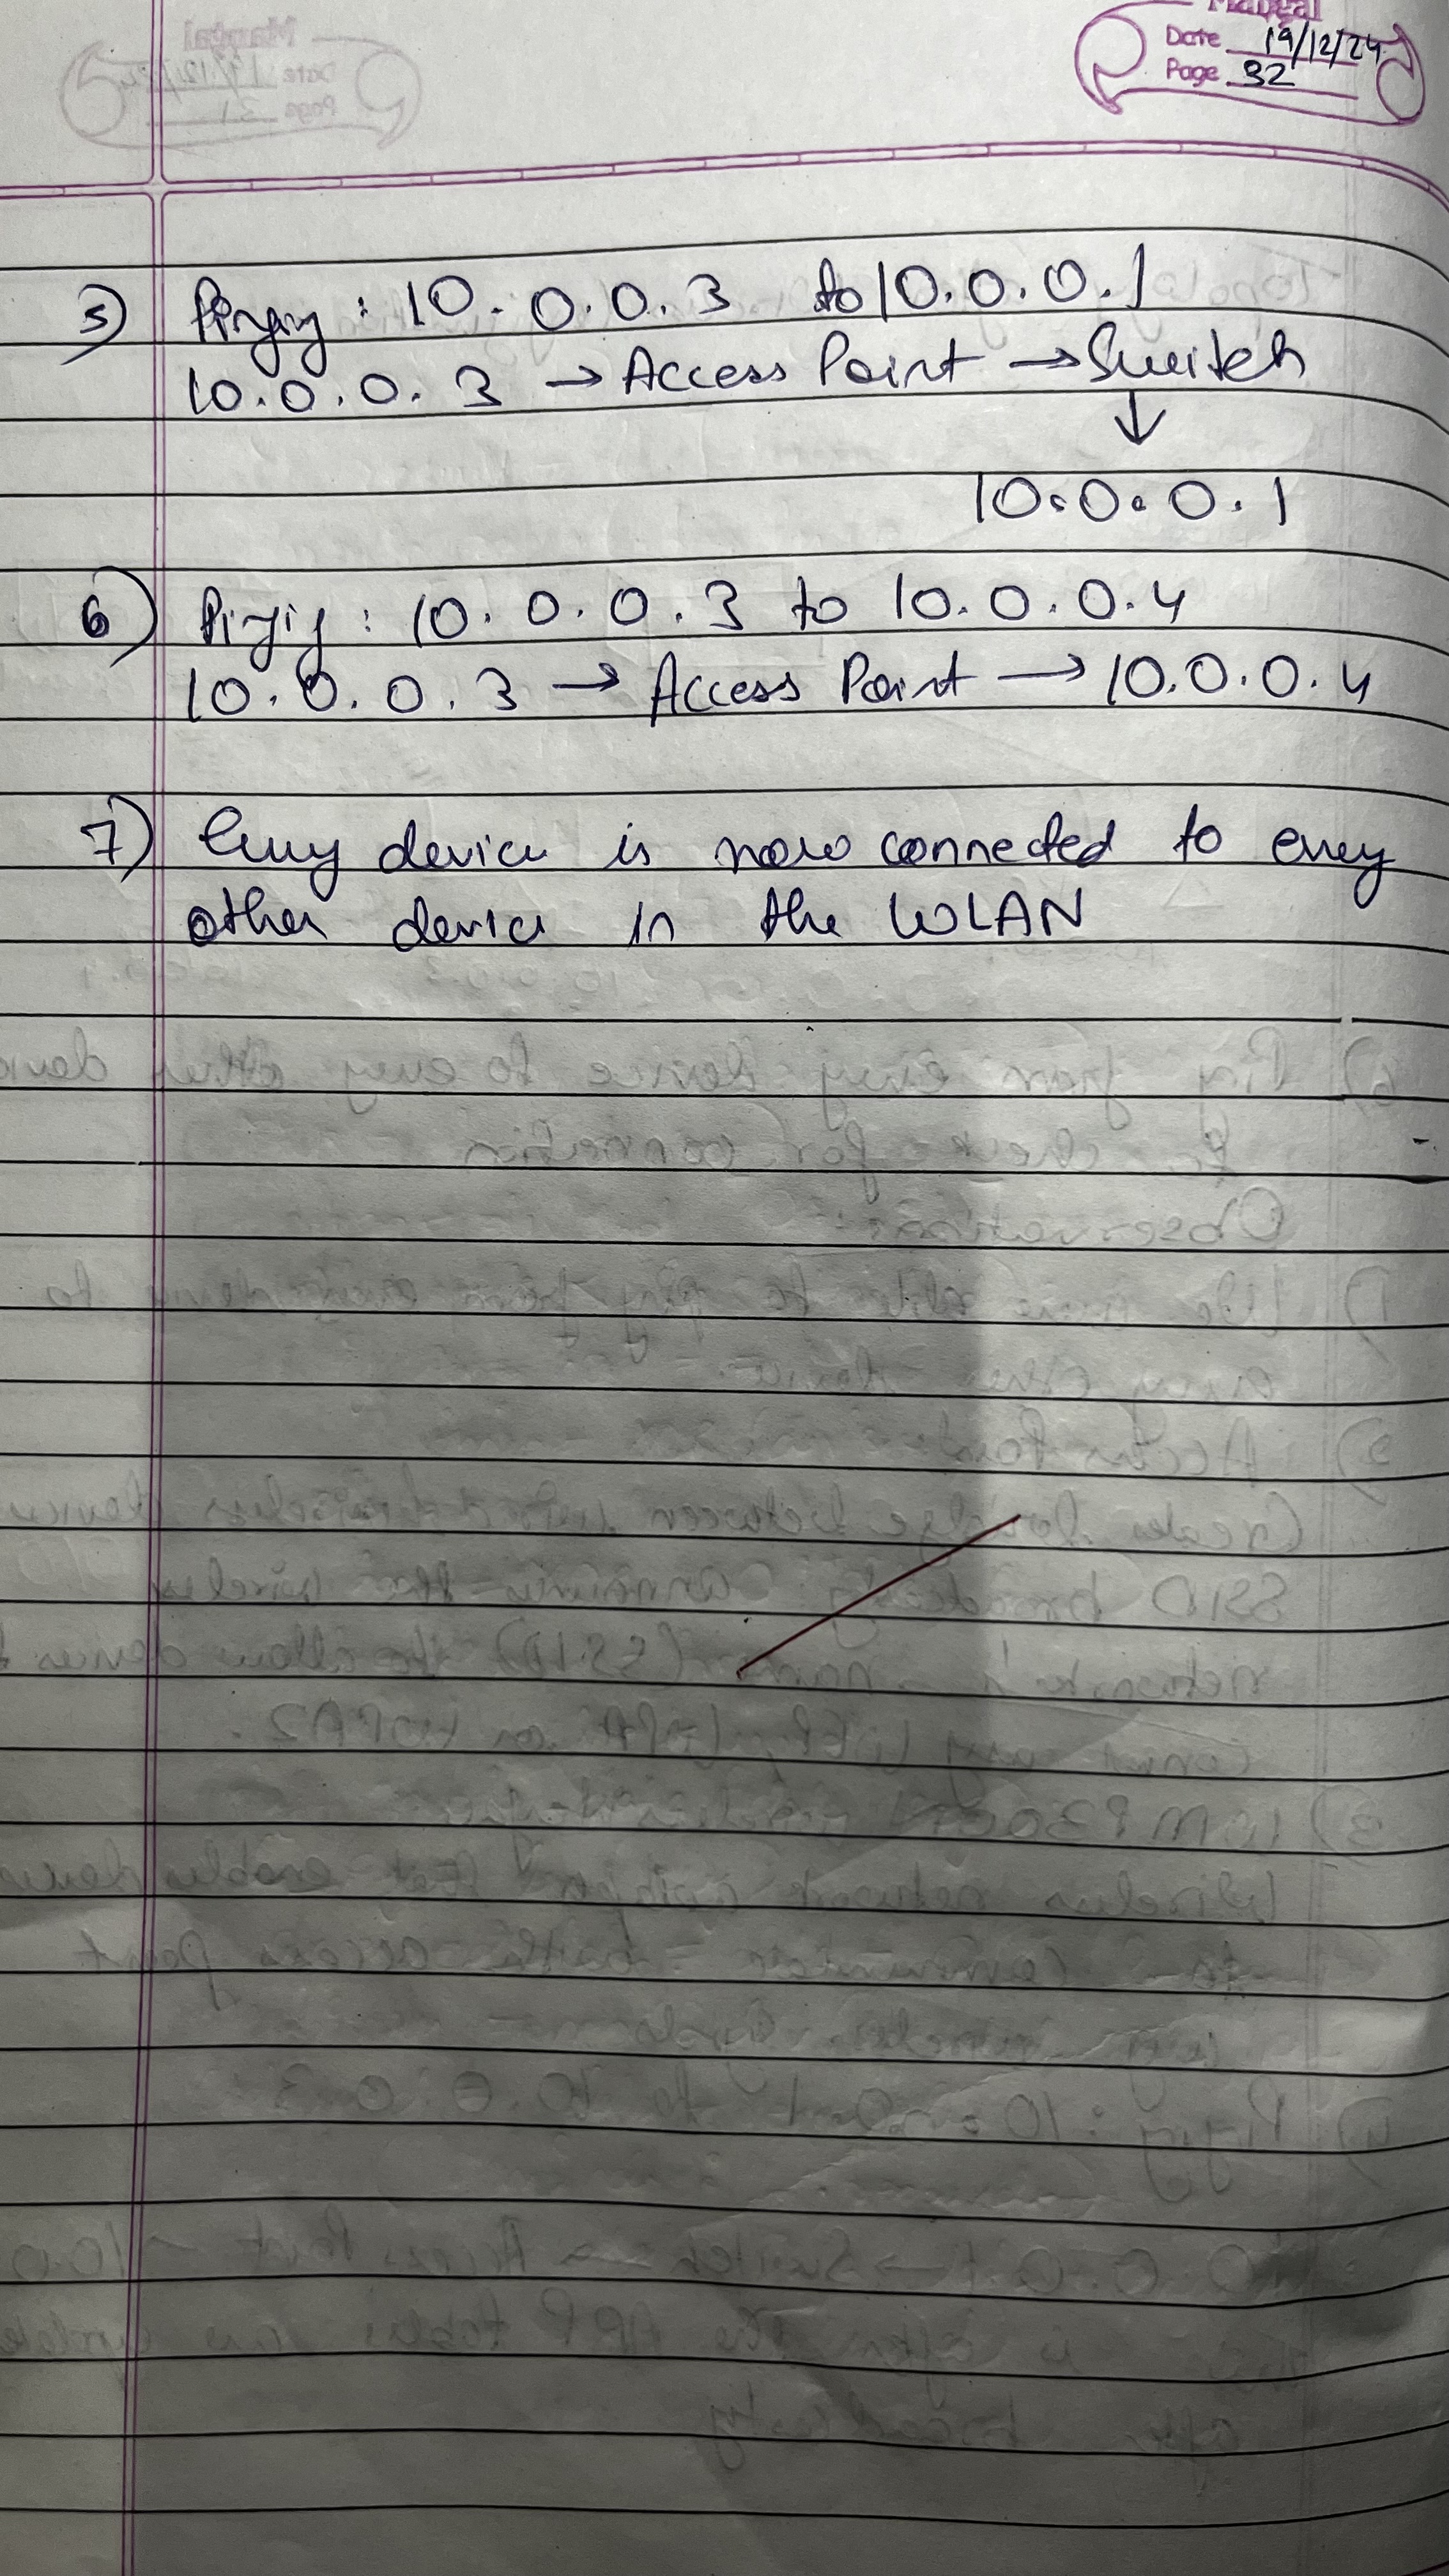 Mangal
Date 19/12/24
Page 32
5) Pinging : 10.0.0.3 to 10.0.0.1
10.0.0.3 → Access Point → Switch
↓
10.0.0.1
6) Pinging : 10.0.0.3 to 10.0.0.4
10.0.0.3 → Access Point → 10.0.0.4
7) Every device is now connected to every
other device in the WLAN